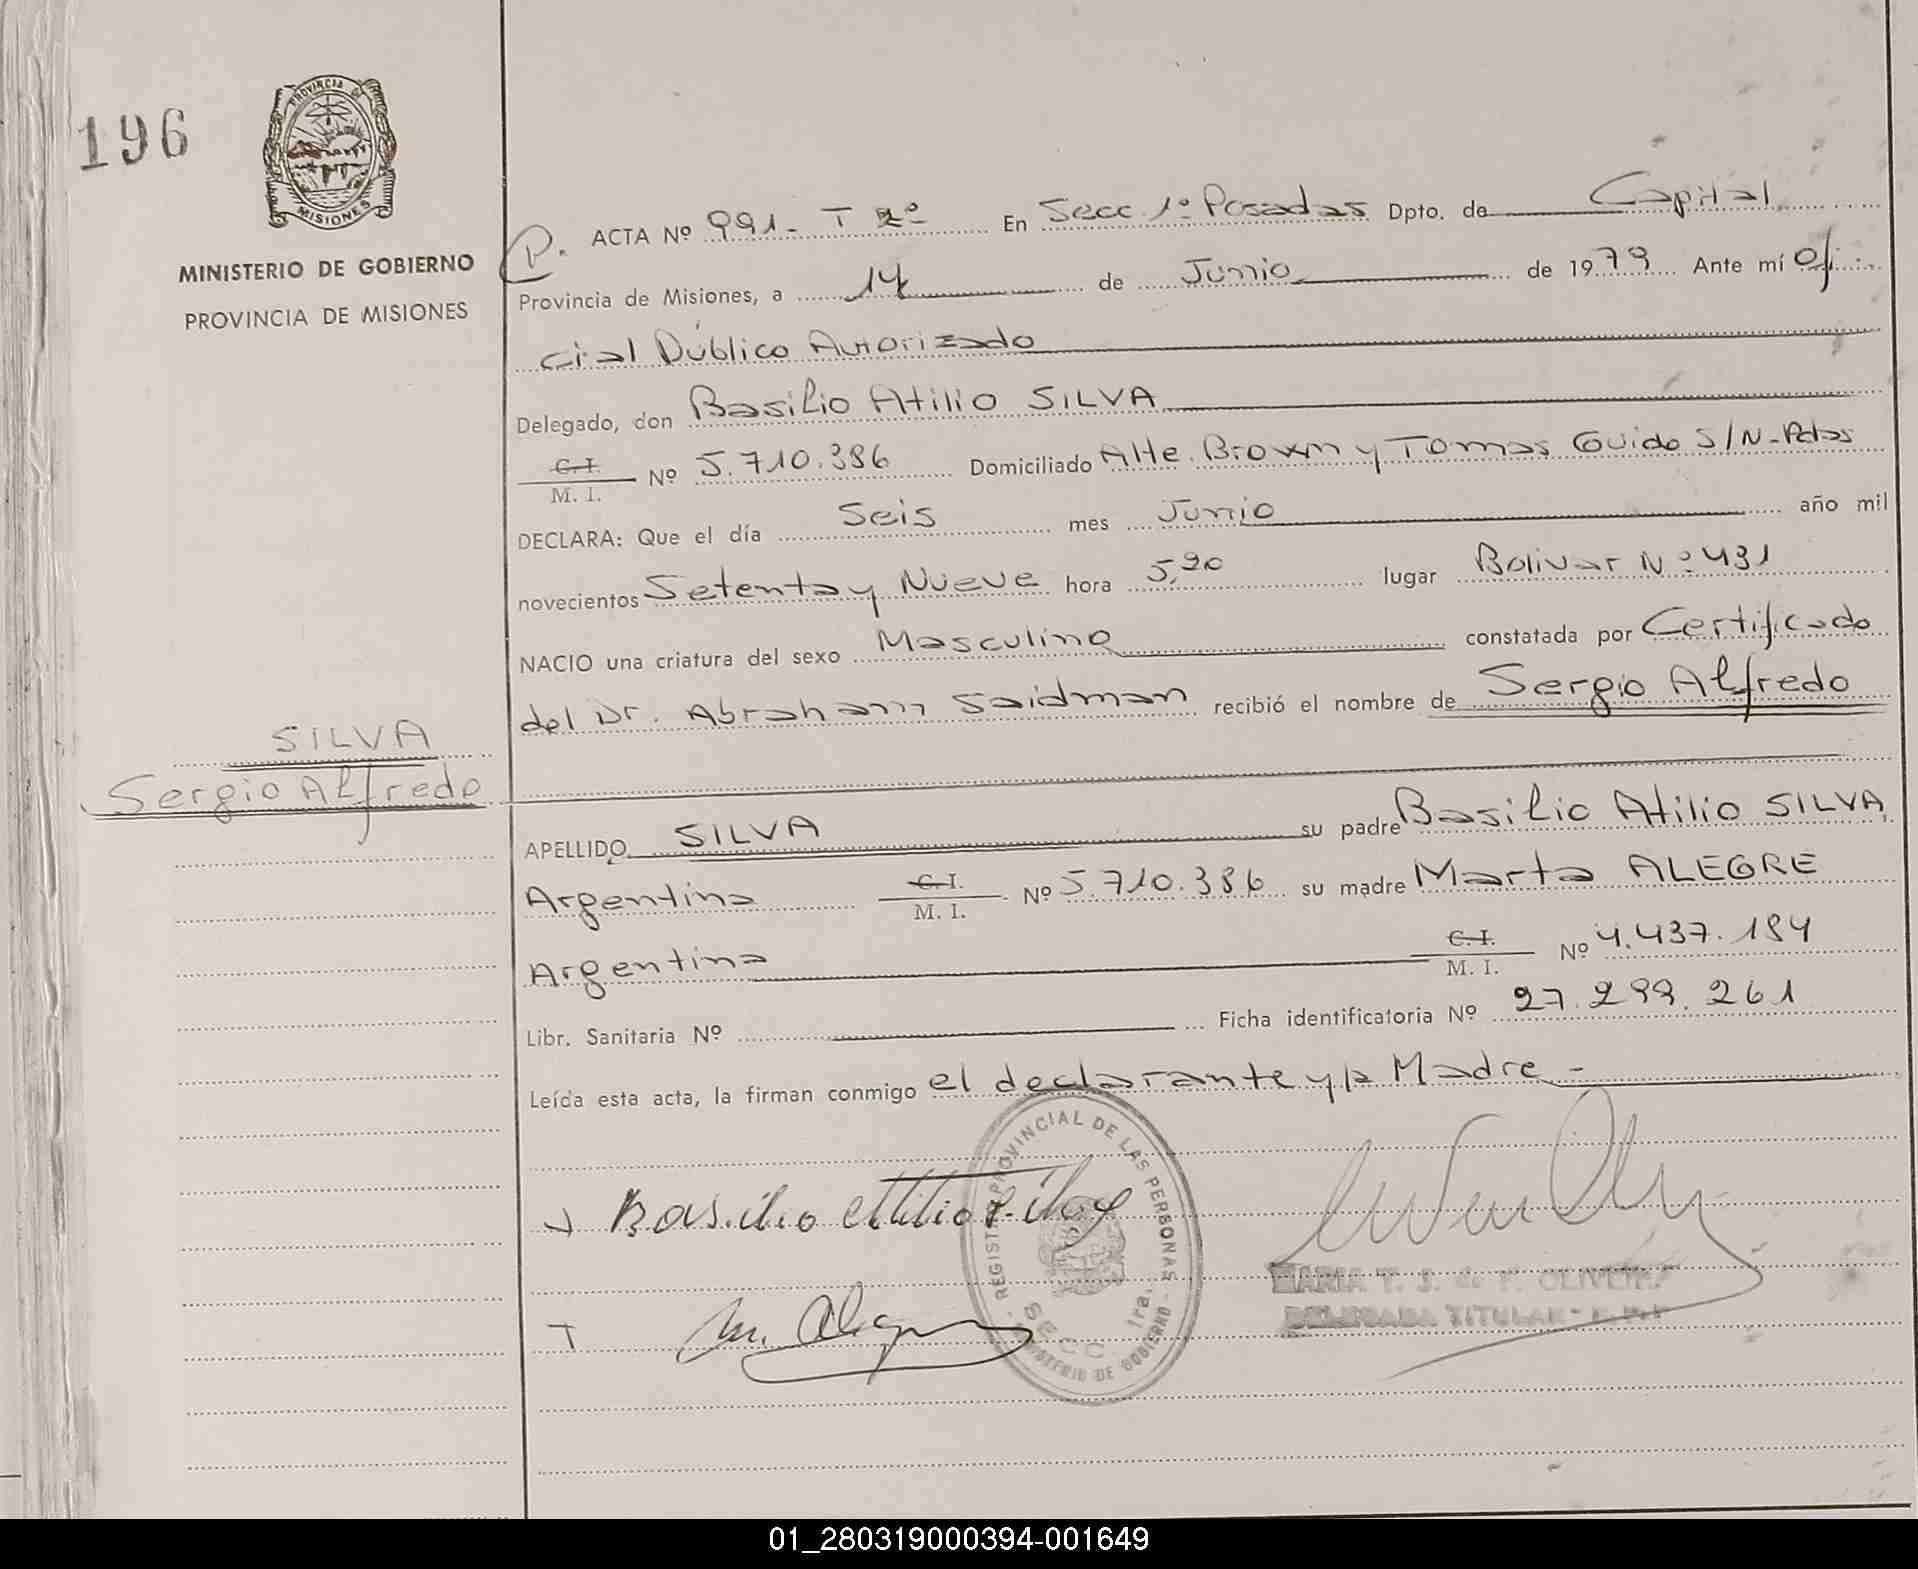 196
PROVINCIA DE
MISIONES
MINISTERIO DE GOBIERNO
PROVINCIA DE MISIONES
P. ACTA Nº 991- T 2º En Secc. 1º Posadas Dpto. de Capital
Provincia de Misiones, a 14 de Junio de 1979 Ante mí Ofi-
cial Público Autorizado
Delegado, don Basilio Atilio SILVA
C.I. / M. I. Nº 5.710.386 Domiciliado Alte. Brown y Tomas Guido S/N-Pdas
DECLARA: Que el día Seis mes Junio año mil
novecientos Setenta y Nueve hora 5,20 lugar Bolivar Nº 431
NACIO una criatura del sexo Masculino constatada por Certificado
del Dr. Abraham Saidman recibió el nombre de Sergio Alfredo
SILVA
Sergio Alfredo
APELLIDO SILVA su padre Basilio Atilio SILVA,
Argentina C.I. / M. I. Nº 5.710.386 su madre Marta ALEGRE
Argentina C.I. / M. I. Nº 4.437.184
Libr. Sanitaria Nº Ficha identificatoria Nº 27.299.261
Leída esta acta, la firman conmigo el declarante y la Madre -
REGISTRO PROVINCIAL DE LAS PERSONAS - MINISTERIO DE GOBIERNO -
SECC. 1ra.
Basilio Atilio Silva
M. Alegre
MARIA T. J. de F. OLIVEIRA
DELEGADA TITULAR
01_280319000394-001649